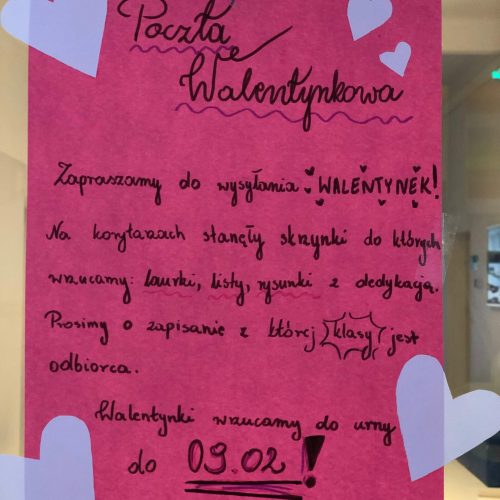 Poczta
Walentynkowa
Zapraszamy do wysyłania WALENTYNEK!
Na korytarzach stanęły skrzynki do których
wrzucamy: laurki, listy, rysunki z dedykacją.
Prosimy o zapisanie z której klasy jest
odbiorca.
Walentynki wrzucamy do urny
do 09.02!